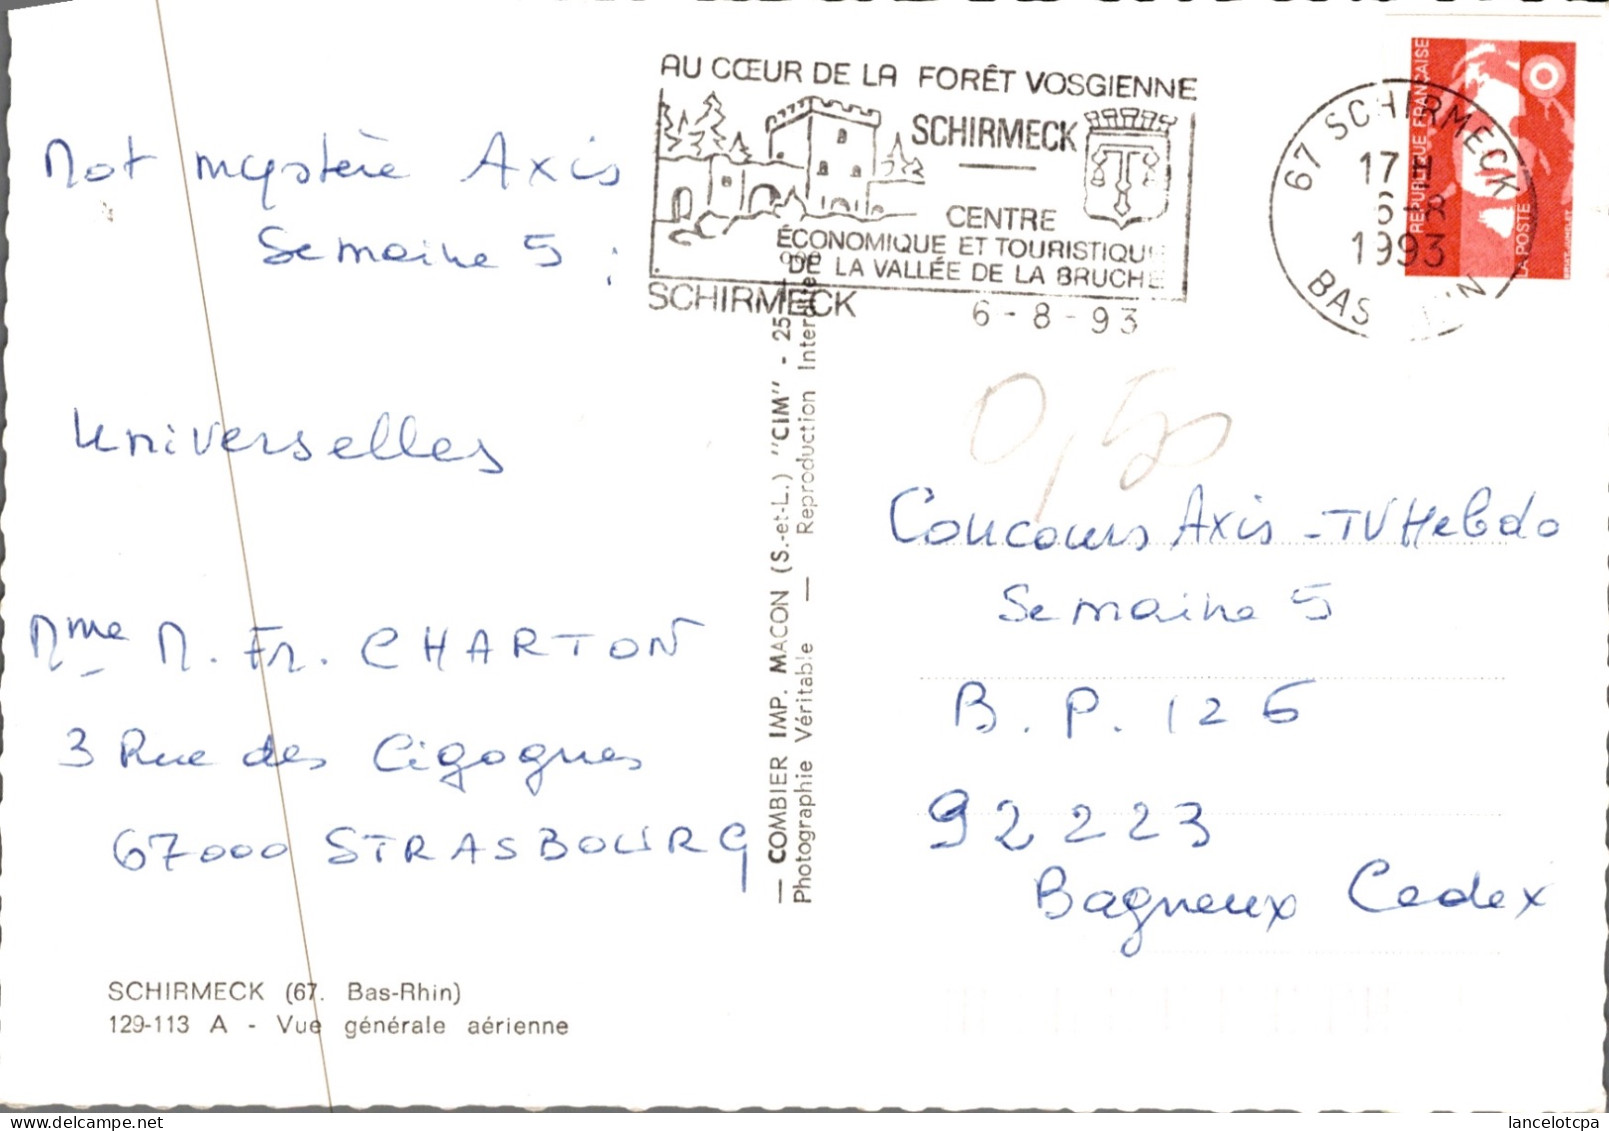 Mot mystère Axis
Semaine 5 :
Universelles
Mme M. Fr. CHARTON
3 Rue des Cigognes
67000 STRASBOURG
SCHIRMECK (67. Bas-Rhin)
129-113 A - Vue générale aérienne
— COMBIER IMP. MACON (S.-et-L.) "CIM" - 25
Photographie Véritable — Reproduction Interdite
AU CŒUR DE LA FORÊT VOSGIENNE
SCHIRMECK
CENTRE
ÉCONOMIQUE ET TOURISTIQUE
DE LA VALLÉE DE LA BRUCHE
SCHIRMECK 6-8-93
67 SCHIRMECK
17 H
6-8
1993
BAS RHIN
RÉPUBLIQUE FRANÇAISE
LA POSTE
0,50
Concours Axis - TV Hebdo
Semaine 5
B.P. 126
92 223
Bagneux Cedex
www.lancelotcpa